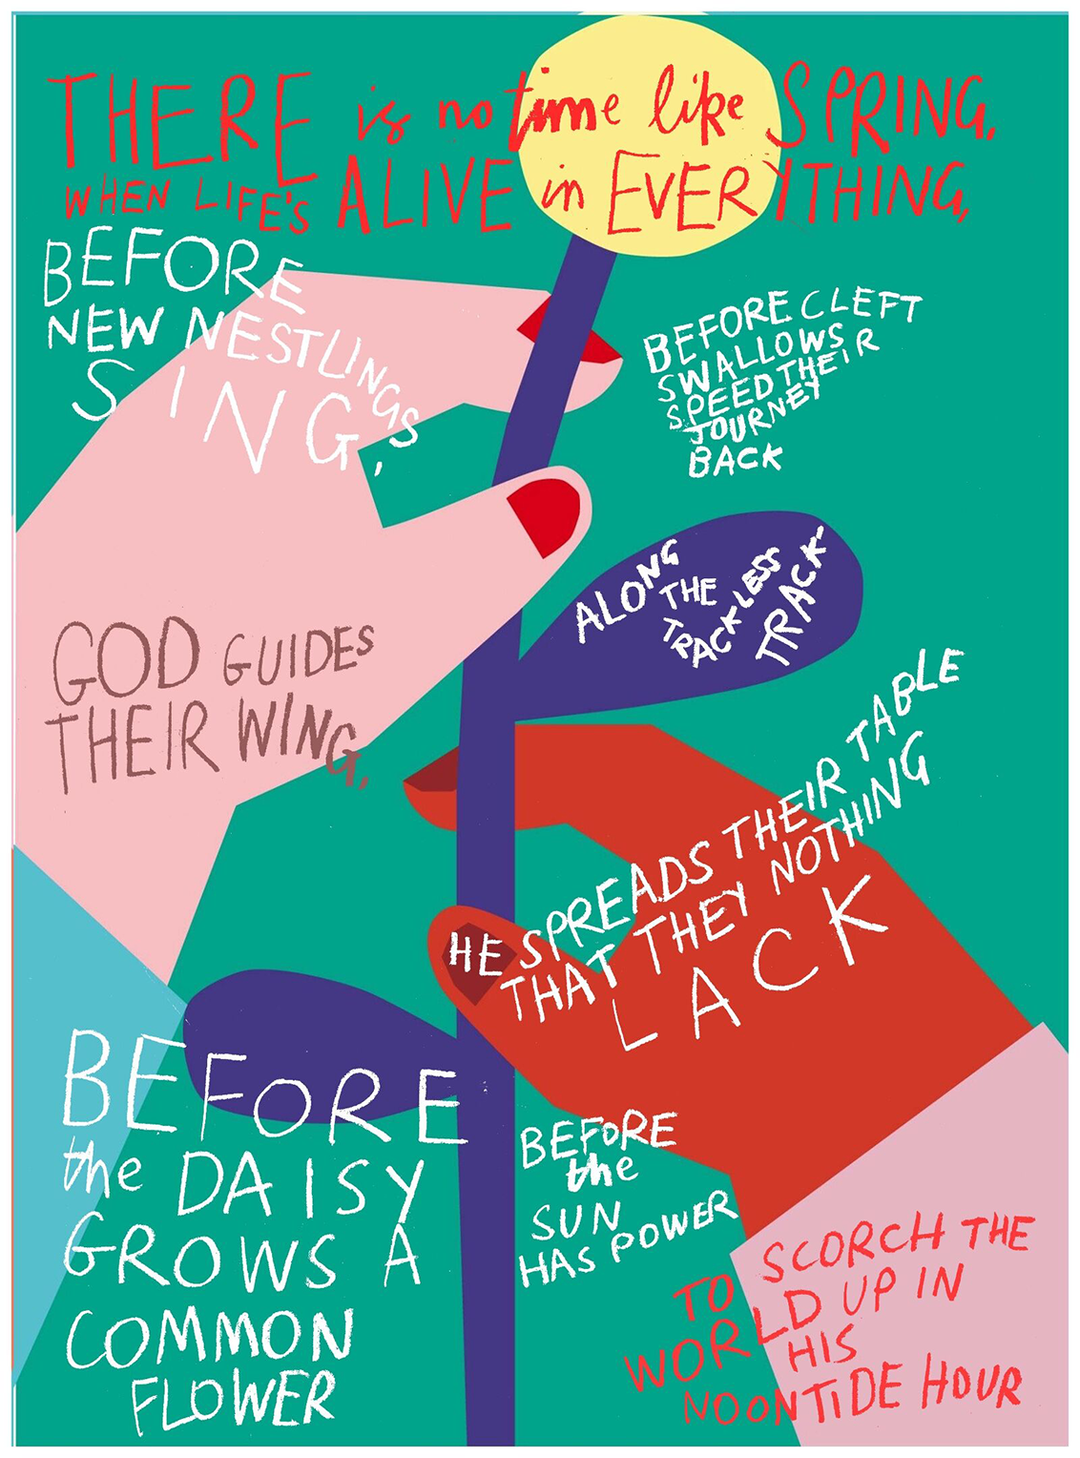 THERE is no time like SPRING,
WHEN LIFE'S ALIVE in EVERYTHING,
BEFORE
NEW NESTLINGS
SING,
BEFORE CLEFT
SWALLOWS
SPEED THEIR
JOURNEY
BACK
ALONG
THE
TRACKLESS
TRACK
GOD GUIDES
THEIR WING,
HE SPREADS THEIR TABLE
THAT THEY NOTHING
LACK
BEFORE
the DAISY
GROWS A
COMMON
FLOWER
BEFORE
the
SUN
HAS POWER
TO SCORCH THE
WORLD UP IN
HIS
NOONTIDE HOUR